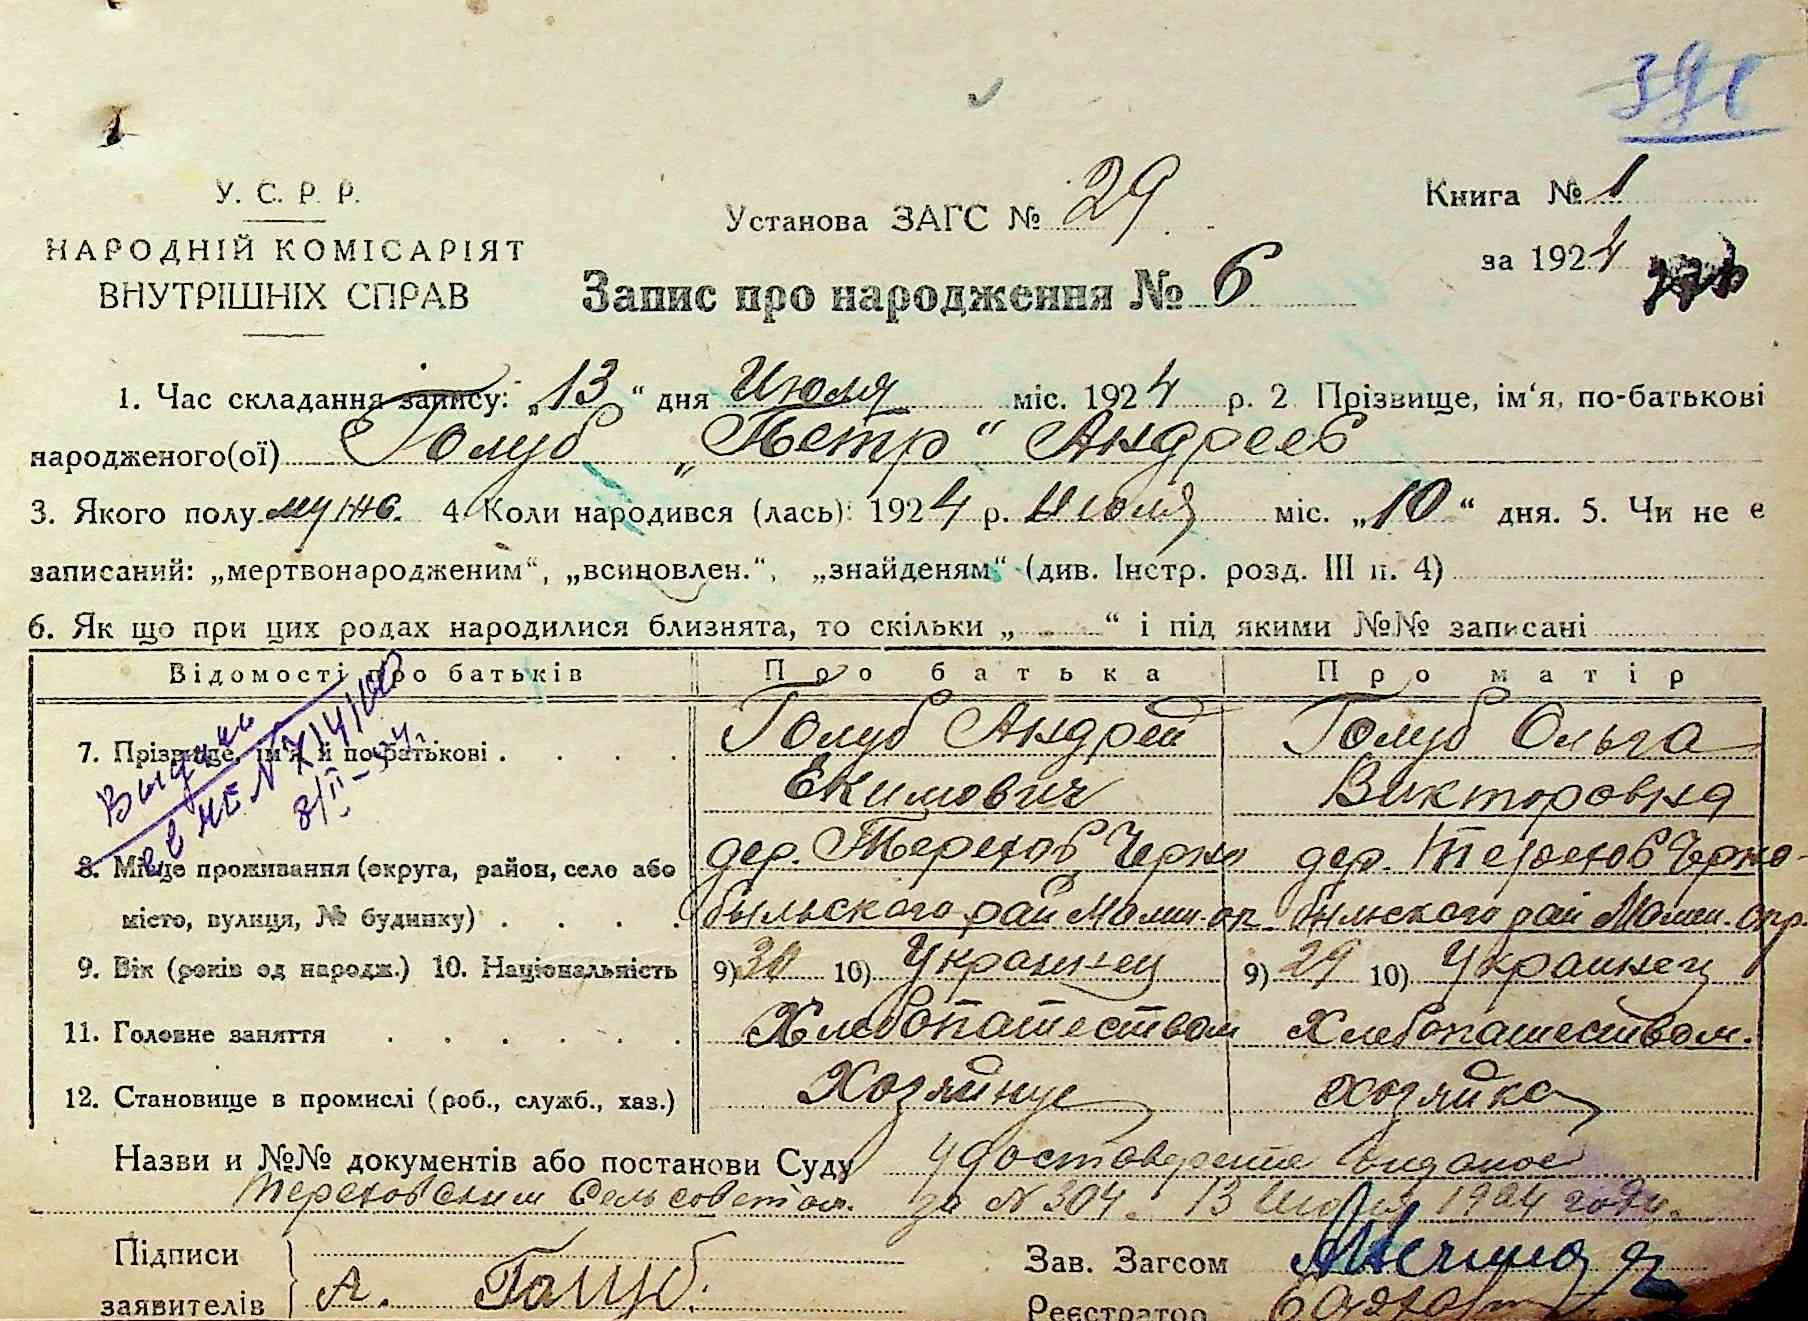 У. С. Р. Р.
НАРОДНІЙ КОМІСАРІЯТ
ВНУТРІШНІХ СПРАВ
Установа ЗАГС № 29
Книга № 1
за 1924
Запис про народження № 6
1. Час складання запису: „13“ дня Июля міс. 1924 р. 2 Прізвище, ім‘я, по-батькові
народженого(ої) Голуб „Петр“ Андреев
3. Якого полу муж. 4. Коли народився (лась): 1924 р. Июля міс. „10“ дня. 5. Чи не є
записаний: „мертвонародженим“, „всиновлен.“, „знайденям“ (див. Інстр. розд. III п. 4)
6. Як що при цих родах народилися близнята, то скільки „ “ і під якими №№ записані
Відомості про батьків Про батька Про матір
7. Прізвище, ім‘я й по-батькові . . . . Голуб Андрей Голуб Ольга
Екимович Викторовна
8. Місце проживання (округа, район, село або дер. Терехов Черно дер. Терехов Черно-
місто, вулиця, № будинку) . . . . быльского рай Малин. ок. быльского рай Малин. окр.
9. Вік (років од народж.) 10. Національність 9) 30 10) Украинец 9) 29 10) Украинец
11. Головне заняття . . . . . . Хлебопашеством Хлебопашеством.
12. Становище в промислі (роб., служб., хаз.) Хозяйнує хозяйка
Выдано
8/II-
Назви и №№ документів або постанови Суду удостоверение выданое
Тереховским Сельсоветом. за № 304. 13 Июля 1924 года.
Підписи
заявителів А. Голуб.
Зав. Загсом
Реєстратор